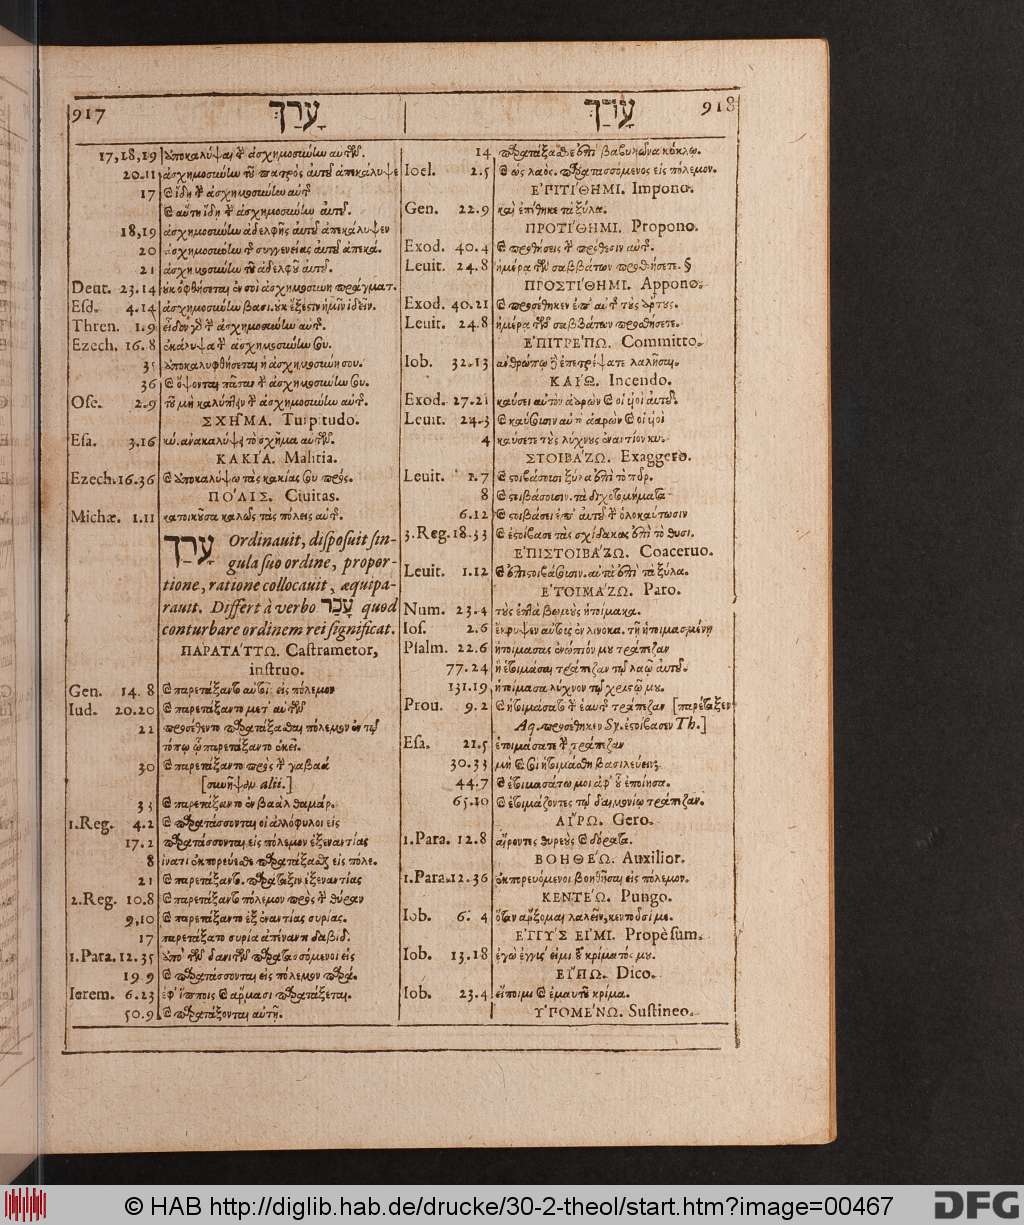 917 עָרַךְ
עָרַךְ 918
17,18,19 ἀποκαλύψαι τ̀ ἀσχημοσύνην αὐτῶν.
20.11 ἀσχημοσύνην τοῦ πατρὸς αὐτοῦ ἀπεκάλυψε
17 ἴδῃ τ̀ ἀσχημοσύνην αὐτ
αὕτη ἴδῃ τ̀ ἀσχημοσύνην αὐτοῦ.
18,19 ἀσχημοσύνην ἀδελφῆς αὐτοῦ ἀπεκάλυψεν
20 ἀσχημοσύνην τ̀ συγγενείας αὐτοῦ ἀπεκά.
21 ἀσχημοσύνην τοῦ ἀδελφοῦ αὐτοῦ.
Deut. 23.14 οὐκ ὀφθήσεται ἐν σοὶ ἀσχημοσύνη πράγματ.
Esd. 4.14 ἀσχημοσύνην βασι. οὐκ ἔξεστιν ἡμῖν ἰδεῖν.
Thren. 1.9 εἶδον τ̀ ἀσχημοσύνην αὐτ.
Ezech. 16.8 ἐκάλυψα τ̀ ἀσχημοσύνην σου.
35 ἀποκαλυφθήσεται ἡ ἀσχημοσύνη σου.
36 ὄψονται πᾶσαν τ̀ ἀσχημοσύνην σου.
Ose. 2.9 τοῦ μὴ καλύπτειν τ̀ ἀσχημοσύνην αὐτ.
ΣΧΗ͂ΜΑ. Turpitudo.
Esa. 3.16 κύ. ἀνακαλύψει τὸ σχῆμα αὐτῶν.
ΚΑΚΊΑ. Malitia.
Ezech. 16.36 ἀποκαλύψω τὰς κακίας σου πρὸς.
ΠΌΛΙΣ. Ciuitas.
Michæ. 1.11 κατοικοῦσα καλῶς τὰς πόλεις αὐτ.
עָרַךְ Ordinauit, disposuit sin-
gula suo ordine, propor-
tione, ratione collocauit, æquipa-
rauit. Differt à verbo עָכַר quod
conturbare ordinem rei significat.
ΠΑΡΑΤΆΤΤΩ. Castrametor,
instruo.
Gen. 14. 8 παρετάξαντο αὐτοῖς εἰς πόλεμον
Iud. 20.20 παρετάξαντο μετ' αὐτῶν
22 προσέθεντο παρατάξασθαι πόλεμον ἐν τῷ
τόπῳ ᾧ παρετάξαντο ἐκεῖ.
30 παρετάξαντο πρὸς τ̀ γαβαὰ
[συνῆψαν alii.]
33 παρετάξαντο ἐν βαὰλ θαμάρ.
1.Reg. 4.2 παρατάσσονται οἱ ἀλλόφυλοι εἰς
17.2 παρατάσσονται εἰς πόλεμον ἐξεναντίας
8 ἱνατί ἐκπορεύεσθε παρατάξασθαι εἰς πόλε.
21 παρετάξαντο. παράταξιν ἐξεναντίας
2.Reg. 10.8 παρετάξαντο πόλεμον πρὸς τ̀ θύραν
9,10 παρετάξαντο ἐξ ἐναντίας συρίας.
17 παρετάξατο συρία ἀπέναντι δαβίδ.
1.Para. 12.35 ἀπὸ τῶν δανιτῶν παρατασσόμενοι εἰς
19 9 παρατάσσονται εἰς πόλεμον παρά.
Ierem. 6.23 ἐφ' ἵπποις ἅρμασι παρατάξεται.
50.9 παρατάξονται αὐτῇ.
14 παρατάξασθε ἐπὶ βαβυλῶνα κύκλῳ.
Ioel. 2.5 ὡς λαὸς. παρατασσόμενος εἰς πόλεμον.
ἘΠΙΤΊΘΗΜΙ. Impono.
Gen. 22.9 καὶ ἐπέθηκε τὰ ξύλα.
ΠΡΟΤΊΘΗΜΙ. Propono.
Exod. 40.4 προθήσεις τ̀ πρόθεσιν αὐτ.
Leuit. 24.8 ἡμέρᾳ τῶν σαββάτων προθήσετε. §
ΠΡΟΣΤΊΘΗΜΙ. Appono.
Exod. 40.21 προσέθηκεν ἐπ' αὐτ τοὺς ἄρτους.
Leuit. 24.8 ἡμέρᾳ τῶν σαββάτων προσθήσετε.
ἘΠΙΤΡΈΠΩ. Committo.
Iob. 32.13 ἀνθρώπῳ ἐπετρέψατε λαλῆσαι.
ΚΑΊΩ. Incendo.
Exod. 27.21 καύσει αὐτὸν ἀαρὼν οἱ υἱοὶ αὐτοῦ.
Leuit. 24.3 καύσουσιν αὐτὸ ἀαρὼν οἱ υἱοὶ
4 καύσετε τοὺς λύχνους ἐναντίον κυ.
ΣΤΟΙΒΆΖΩ. Exaggero.
Leuit. 1.7 στοιβάσουσι ξύλα ἐπὶ τὸ πῦρ.
8 στοιβάσουσιν. τὰ διχοτομήματα
6.12 στοιβάσει ἐπ' αὐτοῦ τ̀ ὁλοκαύτωσιν
3.Reg. 18.33 ἐστοίβασε τὰς σχίδακας ἐπὶ τὸ θυσι.
ἘΠΙΣΤΟΙΒΆΖΩ. Coaceruo.
Leuit. 1.12 ἐπιστοιβάσουσιν. αὐτὰ ἐπὶ τὰ ξύλα.
ἙΤΟΙΜΆΖΩ. Paro.
Num. 23.4 τοὺς ἑπτὰ βωμοὺς ἡτοίμακα.
Ios. 2.6 ἔκρυψεν αὐτοὺς ἐν λινοκα. τῇ ἡτοιμασμένῃ
Psalm. 22.6 ἡτοίμασας ἐνώπιόν μου τράπεζαν
77.24 ἢ ἑτοιμάσαι τράπεζαν τῷ λαῷ αὐτοῦ.
131.19 ἡτοίμασα λύχνον τῷ χριστῷ μου.
Prou. 9.2 ἡτοιμάσατο τ̀ ἑαυτ τράπεζαν [παρέταξεν
Aq. προσέθηκεν Sy. ἐστοίβασεν Th.]
Esa. 21.5 ἑτοιμάσατε τ̀ τράπεζαν
30.33 μὴ σοι ἡτοιμάσθη βασιλεύειν;
44.7 ἑτοιμασάτω μοι ἀφ' οὗ ἐποίησα.
65.10 ἑτοιμάζοντες τῷ δαιμονίῳ τράπεζαν.
ΑἼΡΩ. Gero.
1.Para. 12.8 αἴροντες θυρεοὺς δόρατα.
ΒΟΗΘΈΩ. Auxilior.
1.Para. 12.36 ἐκπορευόμενοι βοηθῆσαι εἰς πόλεμον.
ΚΕΝΤΈΩ. Pungo.
Iob. 6. 4 ὅταν ἄρξομαι λαλεῖν, κεντοῦσί με.
ἘΓΓΎΣ ΕἸΜΙ. Propè sum.
Iob. 13.18 ἐγὼ ἐγγύς εἰμι τοῦ κρίματός μου.
ΕἼΠΩ. Dico.
Iob. 23.4 εἴποιμι ἐμαυτοῦ κρίμα.
ὙΠΟΜΈΝΩ. Sustineo.
© HAB http://diglib.hab.de/drucke/30-2-theol/start.htm?image=00467
DFG